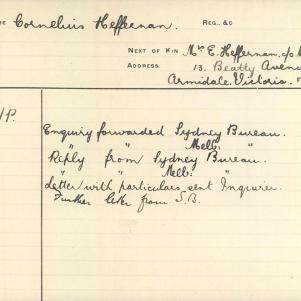 Cornelius Heffernan. REG. &C
NEXT OF KIN Mr E. Heffernan, c/o
ADDRESS 13. Beatty Avenue
Armidale. Victoria. F
/P.
Enquiry forwarded Sydney Bureau.
" " Melb: "
Reply from Sydney Bureau.
" " Melb: "
Letter with particulars sent Enquirer.
Further letter from S.B.